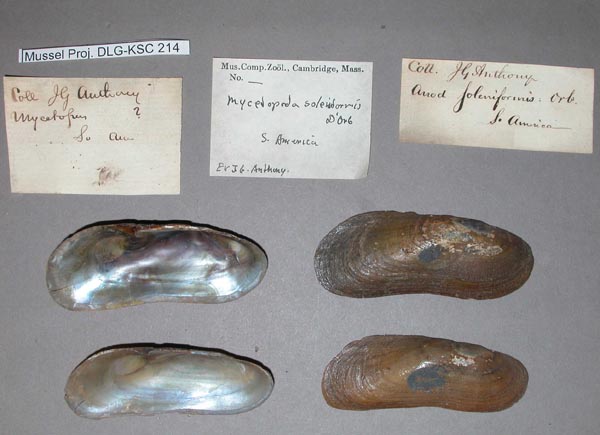 Mussel Proj. DLG-KSC 214
Coll JG Anthony
Mycetopus ?
So Am
Mus. Comp. Zoöl., Cambridge, Mass.
No. —
Mycetopoda soleniformis
D'Orb
S. America
Ex J G. Anthony.
Coll. JG Anthony
Anod soleniformis. Orb.
S. America